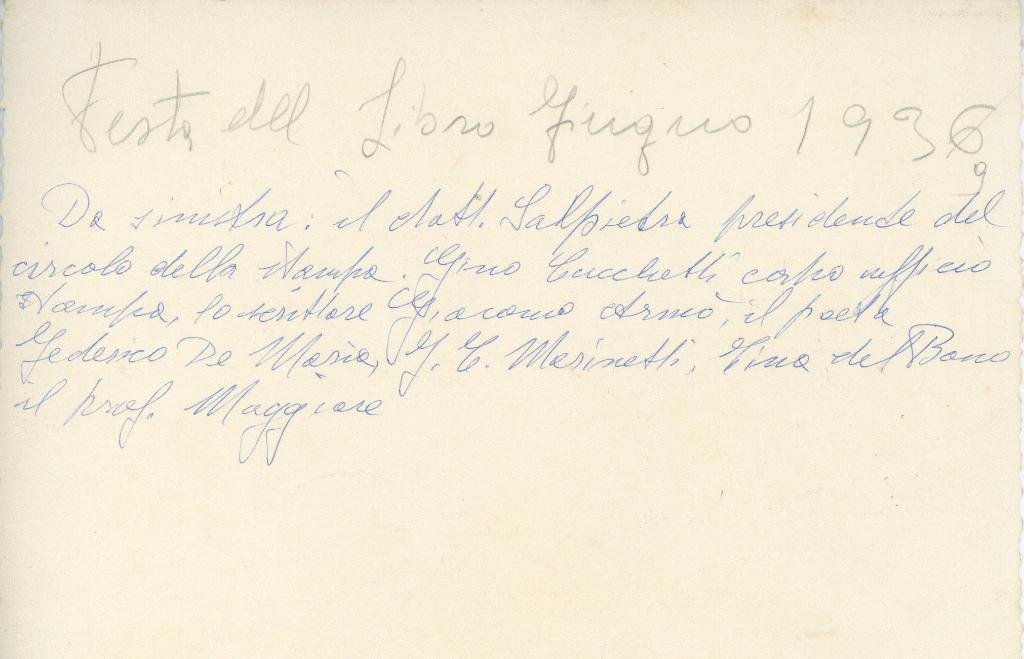 Festa del Libro Giugno 1936
9
Da sinistra: il dott. Salpietra presidente del
circolo della stampa. Gino Cucchetti capo ufficio
stampa, lo scrittore Giacomo Armò, il poeta
Federico De Maria, F. T. Marinetti, Tina del Bono
il prof. Maggiore